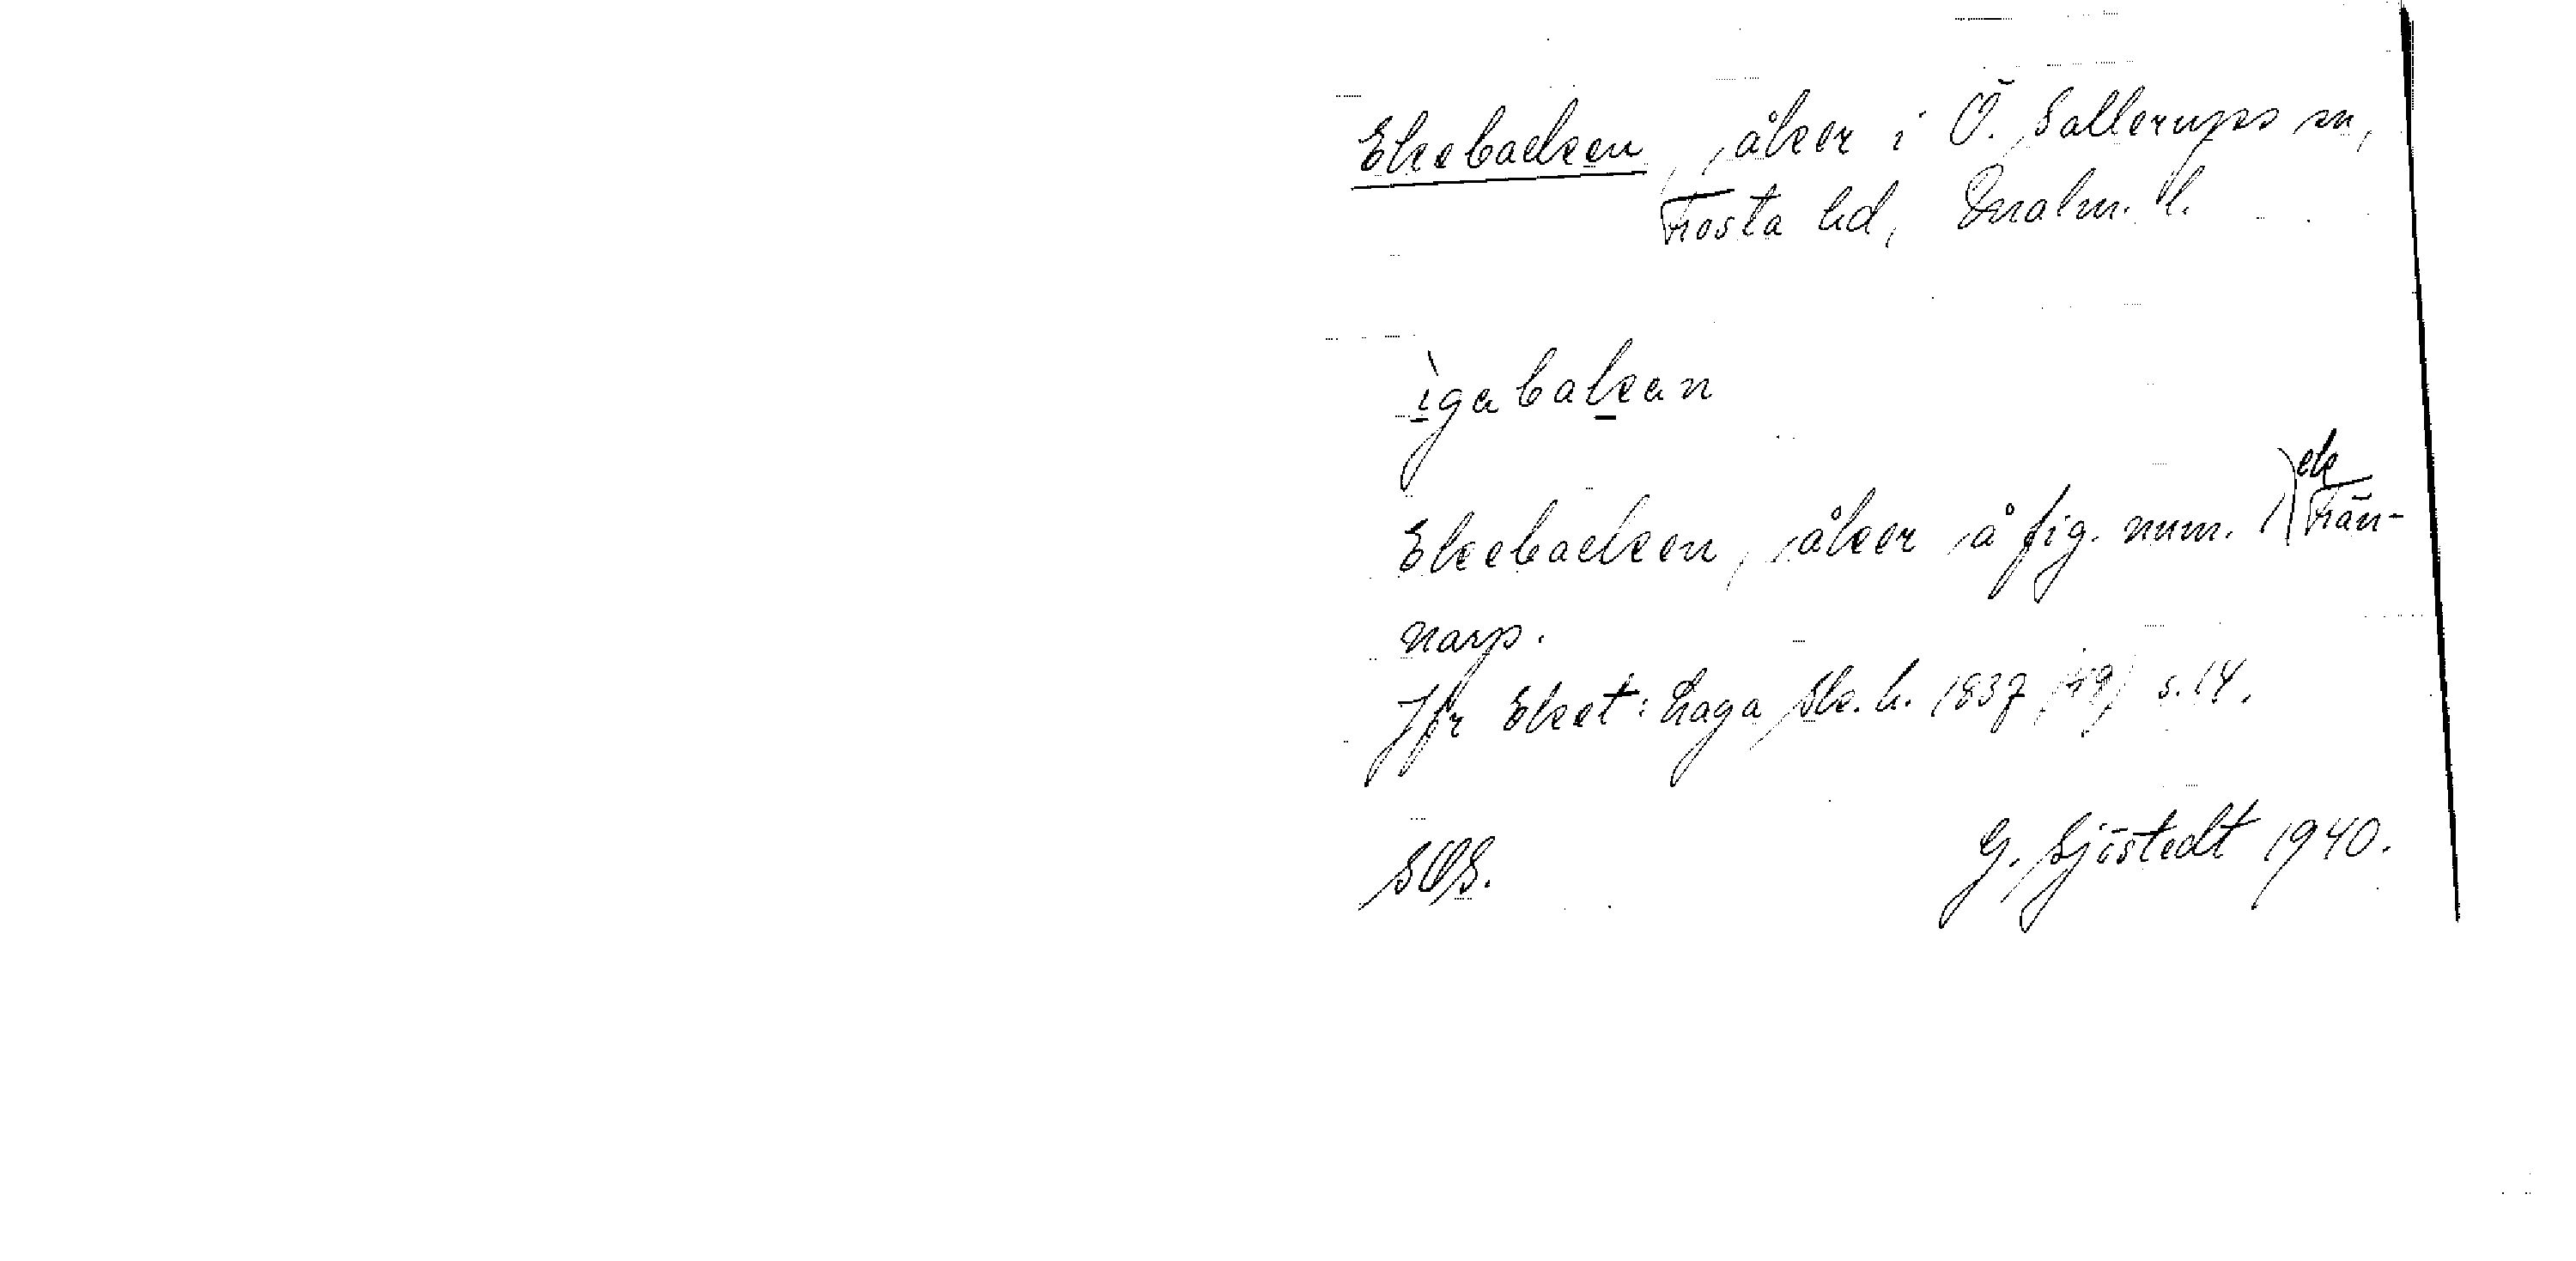 Ekebacken, åker i Ö. Sallerups sn,
Frosta hd, Malm. l.
ìgabakan
Ekebacken, åker å fig. num. 1) ek Frän-
narp.
Jfr Eket: Laga sk. h. 1837 (49) s. 14.
SOS. G. Sjöstedt 1940.